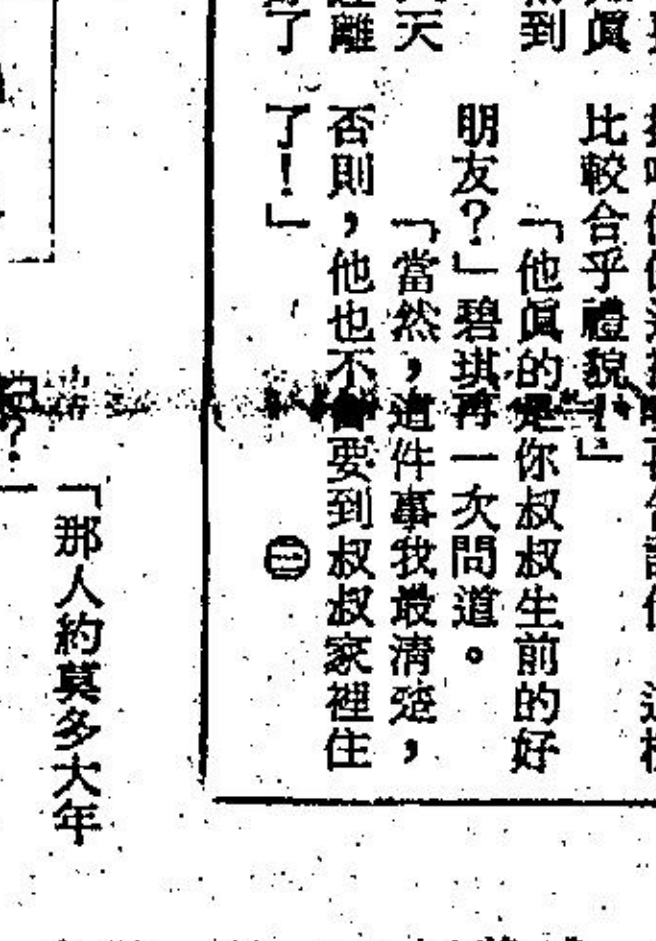 到
比較合乎禮貌！」
「他眞的是你叔叔生前的好
天
朋友？」碧琪再一次問道。
「當然，這件事我最清楚，
離
否則，他也不會要到叔叔家裡住
了
了！」
㊂
「那人約莫多大年
紀？」